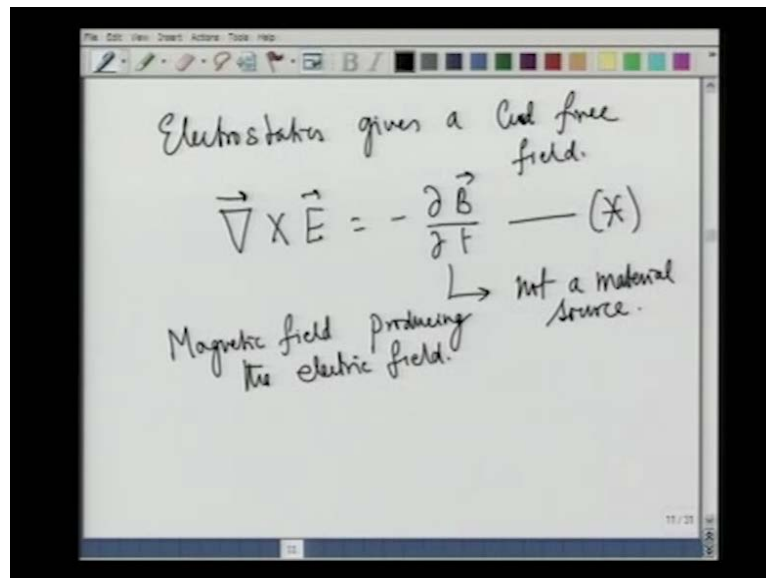 File Edit View Insert Actions Tools Help
B I
Electrostatics gives a Curl free
field.
∇⃗ X E⃗ = - ∂B⃗/∂t —— (*)
↳ not a material
source.
Magnetic field producing
the electric field.
11/31